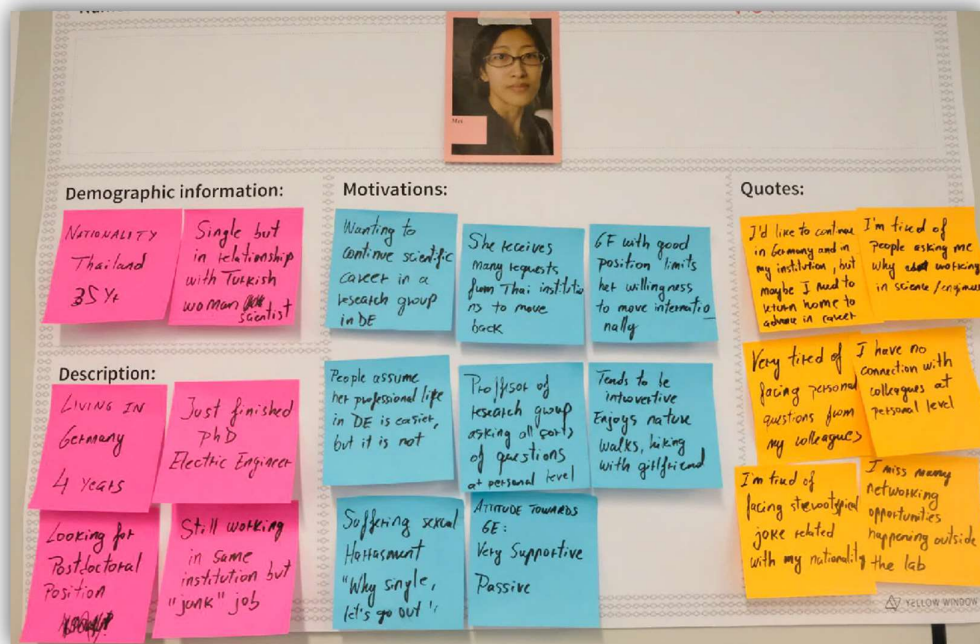 Mei
Demographic information:
NATIONALITY
Thailand
35 Yr
Single but
in relationship
with Turkish
woman
scientist
Description:
LIVING IN
Germany
4 Years
Just finished
PhD
Electric Engineer
Looking for
Postdoctoral
Position
Still working
in same
institution but
"junk" job
Motivations:
Wanting to
continue scientific
career in a
research group
in DE
She receives
many requests
from Thai institutio
ns to move
back
GF with good
position limits
her willingness
to move internatio
nally
People assume
her professional life
in DE is easier,
but it is not
Proffsor of
research group
asking all sorts
of questions
at personal level
Tends to be
introvertive
Enjoys nature
walks, hiking
with girlfriend
Suffering sexual
Harrasment
"Why single,
let's go out"
ATTITUDE TOWARDS
GE:
Very Supportive
Passive
Quotes:
I'd like to continue
in Germany and in
my institution, but
maybe I need to
return home to
advance in career
I'm tired of
people asking me
why working
in science/engineer
Very tired of
facing personal
questions from
my colleagues
I have no
connection with
colleagues at
personal level
I'm tired of
facing stereotypical
joke related
with my nationality
I miss many
networking
opportunities
happening outside
the lab
YELLOW WINDOW